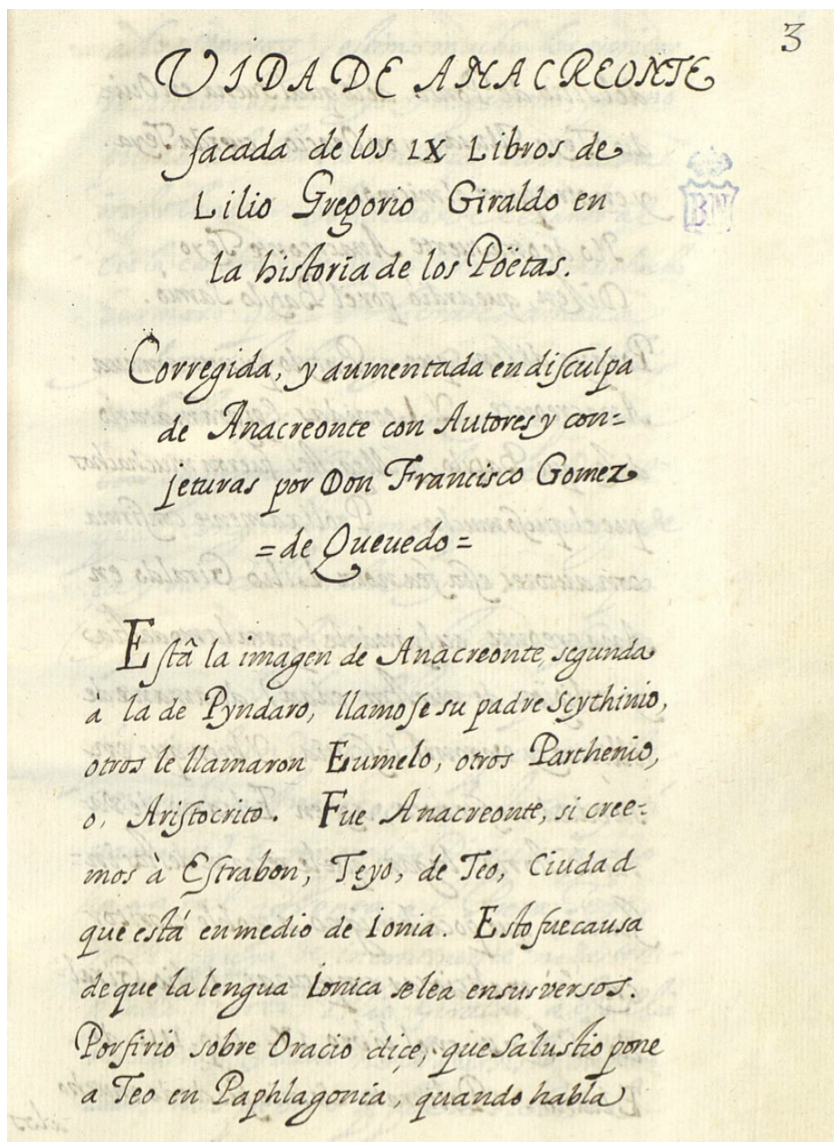 3
VIDA DE ANACREONTE
sacada de los LX Libros de
Lilio Gregorio Giraldo en
la historia de los Pöetas.
Corregida, y aumentada en disculpa
de Anacreonte con Autores y con=
jeturas por Don Francisco Gomez
= de Queuedo =
Estâ la imagen de Anacreonte, segunda
à la de Pyndaro, llamose su padre Scythinio,
otros le llamaron Eumelo, otros Parthenio,
o, Aristocrito. Fue Anacreonte, si cree=
mos à Estrabon, Teyo, de Teo, Ciudad
que está en medio de Ionia. Esto fue causa
de que la lengua Ionica se lea en sus versos.
Porfirio sobre Oracio dice, que Salustio pone
a Teo en Paphlagonia, quando habla
BN